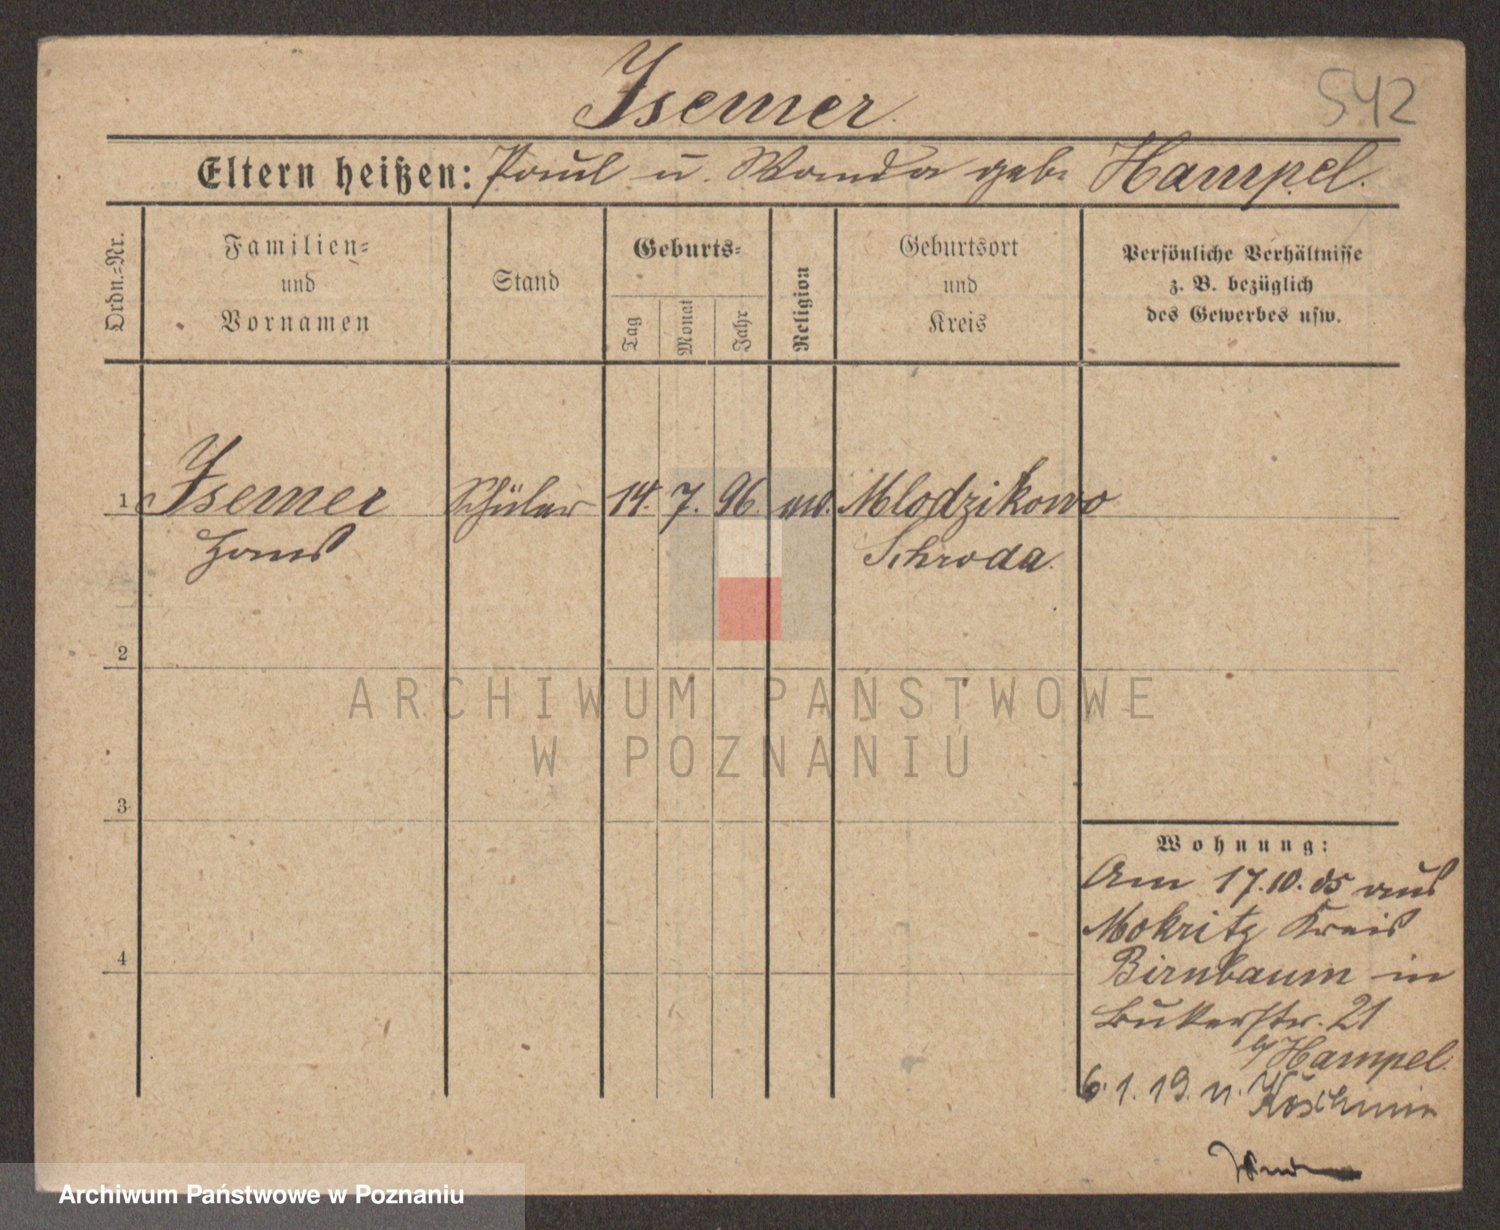 542
Isemer
Eltern heißen: Paul u. Wanda geb. Hampel.
Ordn.=Nr.
Familien=
und
Vornamen
Stand
Geburts=
Tag
Monat
Jahr
Religion
Geburtsort
und
Kreis
Persönliche Verhältnisse
z. B. bezüglich
des Gewerbes usw.
1 Isemer Schüler 14. 7. 96. ev. Mlodzikowo
Hans Schroda.
2
ARCHIWUM PAŃSTWOWE
W POZNANIU
3
4
Wohnung:
Am 17.10.05 aus
Mokritz Kreis
Birnbaum in
Bukerstr. 21
b/Hampel.
6.1.19. n. Koschmin
Archiwum Państwowe w Poznaniu